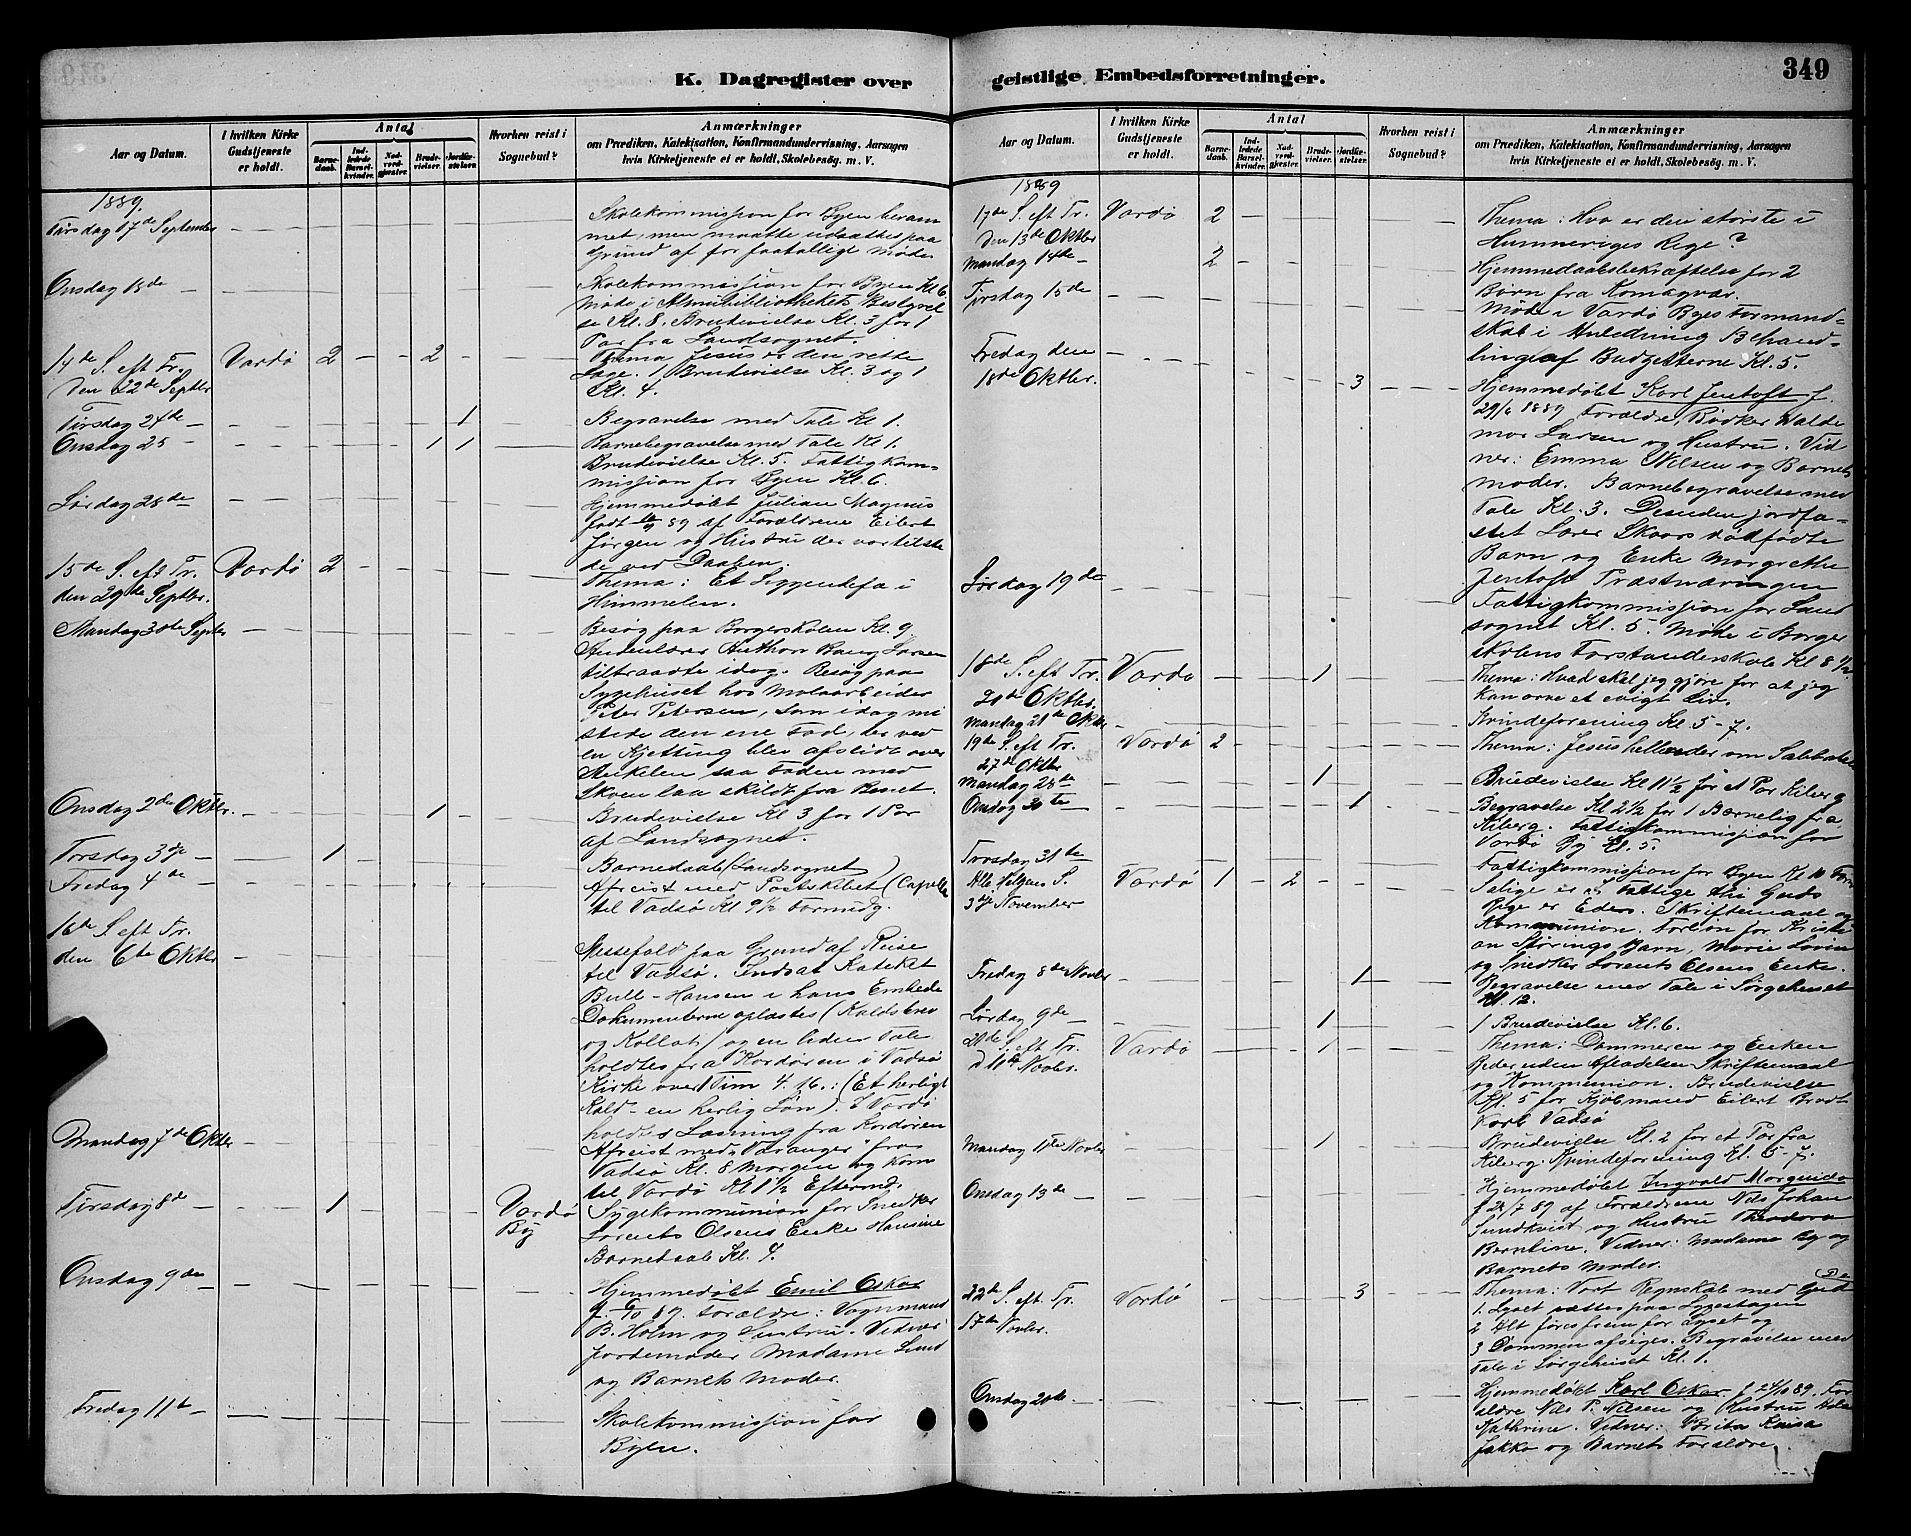 K. Dagregister over geistlige Embedsforretninger.
349
Aar og Datum.
I hvilken Kirke Gudstjeneste er holdt.
Antal
Barnedaab.
Indledede Barselkvinder.
Nadverdgjester.
Brudevielser.
Jordfæstelser.
Hvorhen reist i Sognebud?
Anmærkninger
om Prædiken, Katekisation, Konfirmandundervisning, Aarsagen
hvis Kirketjeneste ei er holdt, Skolebesøg. m. V.
1889.
Tirsdag 17de September
Skolekommission for Byen beram
met, men maatte udsættes paa
Grund af for faatalligt Møde
Onsdag 18de
Skolekommission for Byen Kl. 6.
Møde i Almuebibliothekets Bestyrel
se Kl. 8. Brudevielse Kl. 3 for 1
Par fra Landsognet.
14de S. eft Tr. Vardø 2 2
den 22de Septbr
Thema Jesus er den rette
Læge. 1 Brudevielse Kl. 3 og 1
Kl. 4.
Tirsdag 24de 1
Begravelse med Tale Kl 1.
Onsdag 25 1 1
Barnebegravelse med Tale Kl 1.
Brudevielse Kl. 5. Fattigkom-
mission for Byen Kl. 6.
Lørdag 28de
Hjemmedøbt Julian Magnus
født 89 af Forældrene Eilert
Jørgen og Hustru der var tilste
de ved Daaben.
15de S. eft Tr. Vardø 2
den 29de Septbr.
Thema: Et Liggendefæ i
Himmelen.
Mandag 30te Septbr
Besøg paa Borgerskolen Kl. 9.
Andenlærer Anthon Bang Larsen
tiltraadte idag. Besøg paa
Sygehuset hos Moloarbeider
Peter Petersen, som idag mi
stede den ene Fod, der ved
en Kjetting blev afslidt over
Ankelen saa Foden med
Skoen laa skildt fra Benet.
Onsdag 2den Oktbr. 1
Brudevielse Kl 3 for 1 Par
af Landsognet.
Torsdag 3die 1
Barnedaab (Landsognet)
Fredag 4de
Afreist med Postskibet (Capella
til Vadsø Kl 9½ Formidg.
16de S. eft Tr.
den 6te Oktbr
Messefald paa Grund af Reise
til Vadsø. Indsat Kateket
Bull-Hansen i hans Embede
Dokumenterne oplæstes (Kaldsbrev
og Kollats) og en liden Tale
holdtes fra Kordøren i Vadsø
Kirke over 1 Tim 4. 16.: (Et herligt
Kald - en herlig Løn). I Vardø
holdtes Læsning fra Kordøren
Mandag 7de Oktbr
Afreist med "Varanger" fra
Vadsø Kl. 8 Morgen og kom
til Vardø Kl 1½ Efterm.
Tirsdag 8de 1 Vardø By
Sygekommunion for Snedker
Lorents Olsens Enke Hansine
Barnedaab Kl. 4.
Onsdag 9de
Hjemmedøbt Emil Oskar
f. 6/10 89. Forældre: Vognmand
B. Holm og Hustru. Vidner
Jordemoder Madame Lund
og Barnets Moder.
Fredag 11te
Skolekommission for
Byen.
Aar og Datum.
I hvilken Kirke Gudstjeneste er holdt.
Antal
Barnedaab.
Indledede Barselkvinder.
Nadverdgjester.
Brudevielser.
Jordfæstelser.
Hvorhen reist i Sognebud?
Anmærkninger
om Prædiken, Katekisation, Konfirmandundervisning, Aarsagen
hvis Kirketjeneste ei er holdt, Skolebesøg. m. V.
1889
17de S. eft Tr. Vardø 2
den 13de Oktbr
Thema: Hvo er den største i
Himmeriges Rige?
Mandag 14de 2
Hjemmedaabsbekræftelse for 2
Børn fra Komagvær.
Tirsdag 15de
Møde i Vardø Byes Formand-
skab i Anledning Behand-
ling af Budgetterne Kl. 5.
Fredag den
18de Oktbr. 3
Hjemmedøbt Karl Jentoft f.
29/6 1889 Forældre, Bødker Walde
mar Larsen og Hustru. Vid
ner: Emma Nilsen og Barnets
moder. Barnebegravelse med
Tale Kl. 3. Desuden jordfæ-
stet Lars Skaars dødfødte
Barn og Enke Margrethe
Jentoft Præstnæringen
Lørdag 19de
Fattigkommission for Land
sognet Kl. 5. Møde i Borger
skolens Forstanderskab Kl 8½
18de S. eft Tr. Vardø 1
20de Oktbr.
Thema: Hvad skal jeg gjøre for at jeg
kan arve et evigt Liv.
Mandag 21de Oktbr
Kvindeforening Kl. 5-7.
19de S. eft Tr. Vardø 2
27de Oktbr
Thema: Jesus helbreder om Sabbaten
Mandag 28de 1
Brudevielse Kl 11½ for et Par Kiberg
Onsdag 30te 1
Begravelse Kl 2½ for 1 Barnelig fra
Kiberg. Fattigkommission for
Vardø By Kl. 5.
Torsdag 31te
Fattigkommission for Byen Kl 10 Form
Alle Helgens S. Vardø 1 2
3die November
Salige er I Fattige thi Guds
Rige er Eders. Skriftemaal og
Kommunion. Forbøn for Kristi
an Størings Barn, Marie Lovise
og Snedker Lorents Olsens Enke.
Fredag 8de Novbr 1
Begravelse med Tale i Sørgehuset
Kl. 12.
Lørdag 9de 1
1 Brudevielse Kl. 6.
21de S. eft Tr. Vardø 1
d. 10de Novbr.
Thema: Dommeren og Enken
Beder uden Afladelse Skriftemaal
og Kommunion. Brudevielse
Kl. 5 for Kjøbmand Eilert Brodt
korb Vadsø
Mandag 11te Novbr 1
Brudevielse Kl. 2 for et Par fra
Kiberg. Kvindeforening Kl. 5-7.
Onsdag 13de
Hjemmedøbt Ingvald
f 21/7 89 af Forældrene Nils Johan
Sundkvist og Hustru Theodora
Berntine. Vidner: Madame By og
Barnets Moder.
22de S. eft Tr. Vardø 3
17de Novbr.
Thema: Vort Regnskab med Gud
1. Lyset sættes paa Lysestagen
2 Alt føres frem for Lyset og
3 Dommen afsiges. Begravelse med
Tale i Sørgehuset Kl. 1.
Onsdag 20de
Hjemmedøbt Karl Oskar f 24/10 89. For
ældre Nils P. Nilsen og Hustru
Kathrine. Vidner: Brita Kaisa
Jakko og Barnets Forældre.